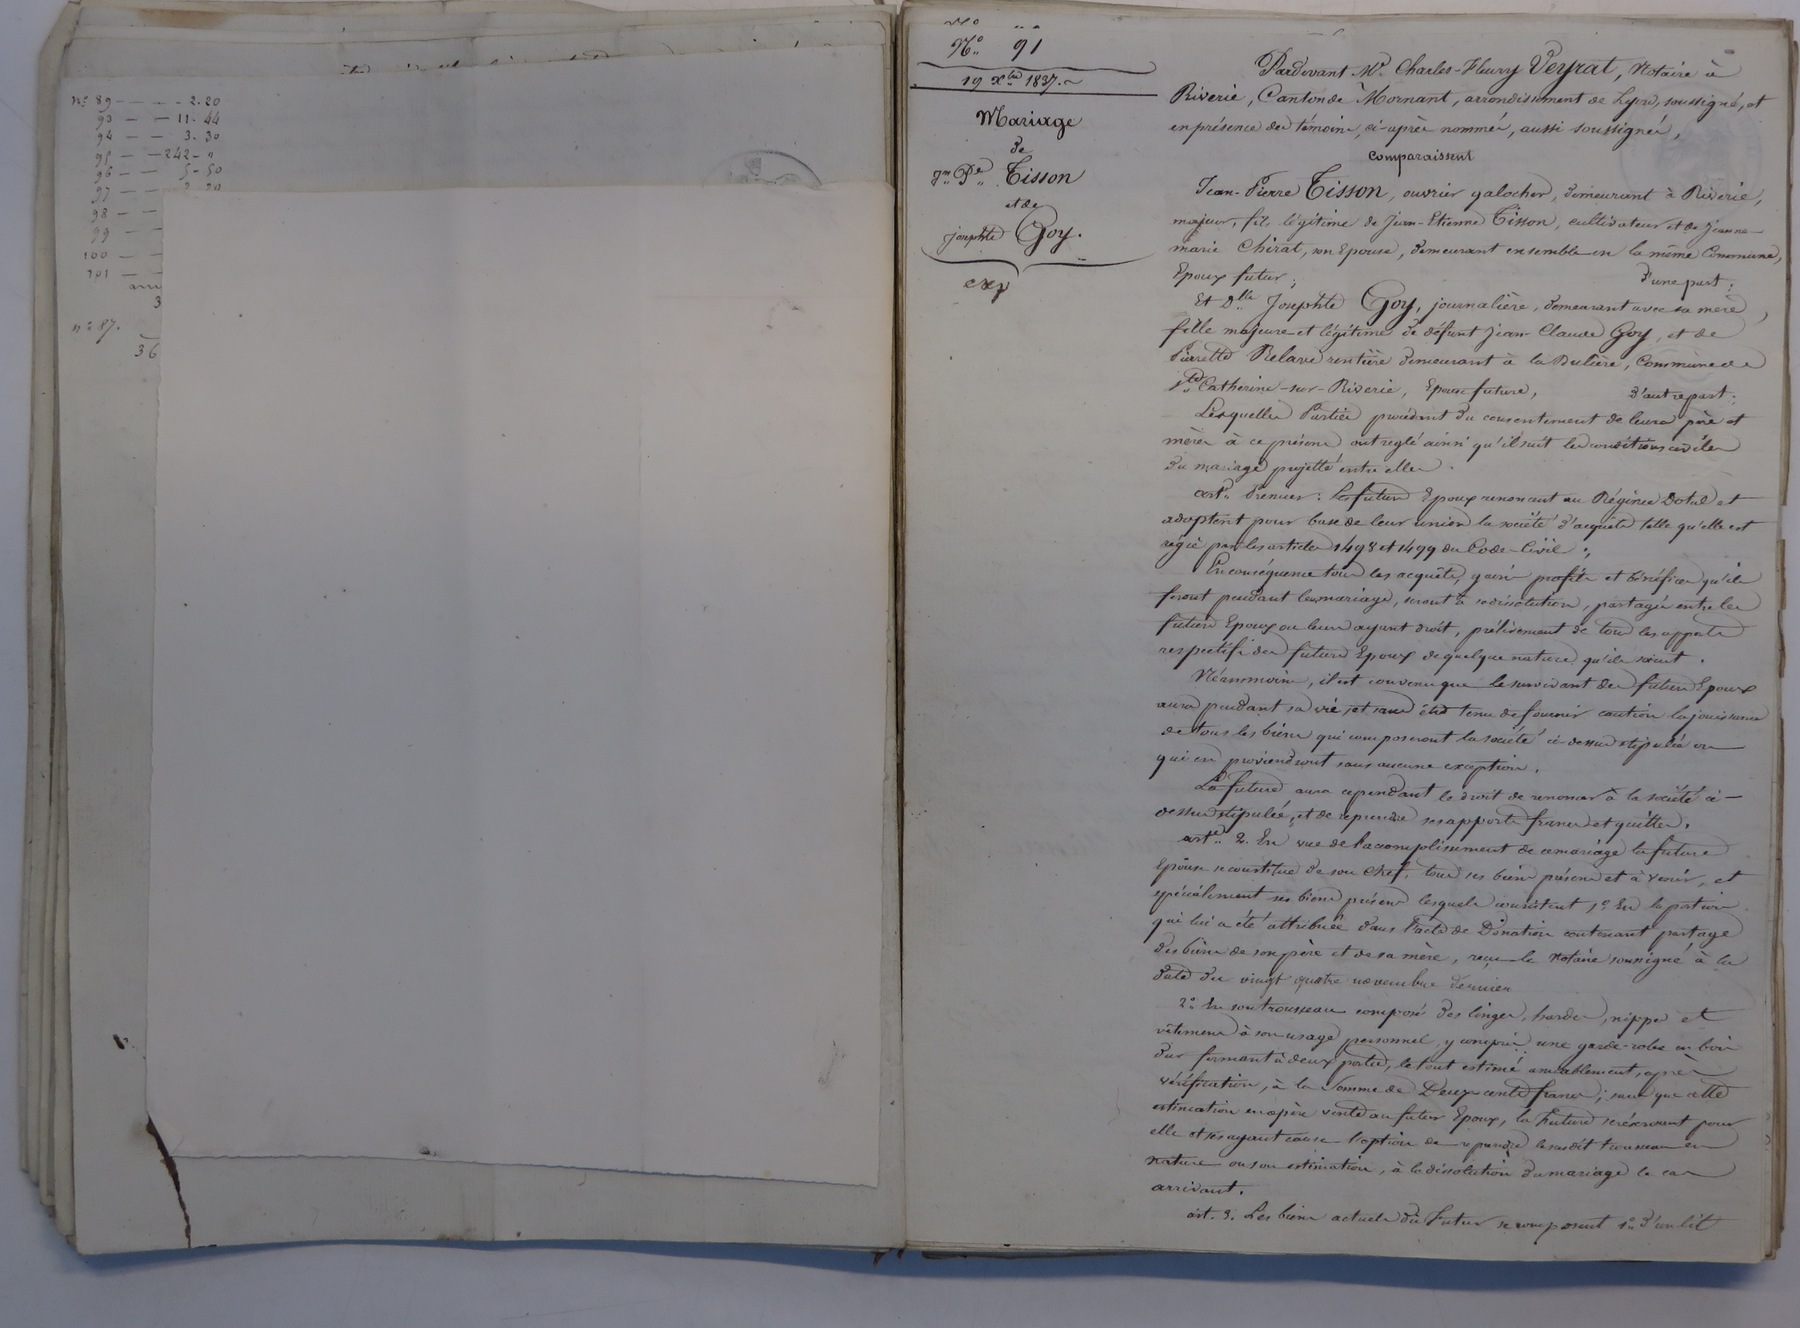 nº 89 — — — 2.20
93 — — 11.44
94 — — 3.30
95 — — 242 - "
96 — — 5-50
97 — —
98 — —
99 — —
100 — —
101 — —
3
nº 87.
36
Nº 91
19 Xbre 1837.
Mariage
de
Jn Pre Tisson
et de
Josephte Goy.
exp
Pardevant Me Charles-Fleury Veyrat, Notaire à
Riverie, Canton de Mornant, arrondissement de Lyon, soussigné, et
en présence des témoins, ci-après nommés, aussi soussignés,
comparaissent
Jean-Pierre Tisson, ouvrier galocher, demeurant à Riverie,
majeur, fils légitime de Jean-Etienne Tisson, cultivateur et de Jeanne-
marie Chirat, son Epouse, demeurant ensemble en la même Commune,
Epoux futur; d'une part;
Et Dlle Josephte Goy, journalière, demeurant avec sa mère,
fille majeure et légitime de défunt Jean-Claude Goy, et de
Pierrette Relave rentière demeurant à la Bulière, Commune de
Ste Catherine-sur-Riverie, Epouse future, d'autre part;
Lesquelles Parties procédant du consentement de leurs père et
mères à ce présens ont reglé ainsi qu'il suit les conditions civiles
du mariage projetté entre elles.
artе Premier: Les futurs Epoux renoncent au Régime Dotal et
adoptent pour base de leur union la société d'acquêts telle qu'elle est
régie par les articles 1498 et 1499 du Code Civil;
En conséquence tous les acquêts, gains profits et bénéfices qu'ils
feront pendant leur mariage, seront à sa dissolution, partagés entre les
futurs Epoux ou leurs ayant droit, prélèvement de tous les apports
respectifs des futurs Epoux de quelque nature qu'ils soient.
Néanmoins, il est convenu que le survivant des futurs Epoux
aura pendant sa vie, et sans être tenu de fournir caution la jouissance
de tous les biens qui composeront la société ci-dessus stipulée ou
qui en proviendront sans aucune exception.
La future aura cependant le droit de renoncer à la société ci-
dessus stipulée, et de reprendre ses apports francs et quittes.
arte 2. En vue de l'accomplissement de ce mariage la future
Epouse se constitue de son chef, tous ses biens présens et à venir, et
spécialement ses biens présens lesquels consistent 1º En la portion
qui lui a été attribuée dans l'acte de Donation contenant partage
des biens de son père et de sa mère, reçu le Notaire soussigné à la
date du vingt quatre novembre dernier
2º En son trousseau composé des linges, hardes, nippes et
vêtemens à son usage personnel, y compris une garde-robe en bois
dur fermant à deux portes, le tout estimé amiablement, après
vérification, à la Somme de Deux cents francs; sans que cette
estimation en opère vente au futur Epoux, la Future se réservant pour
elle et ses ayant cause l'option de reprendre le susdit trousseau en
nature ou son estimation, à la dissolution du mariage le cas
arrivant.
art. 3. Les biens actuels du Futur se composent 1º D'un lit